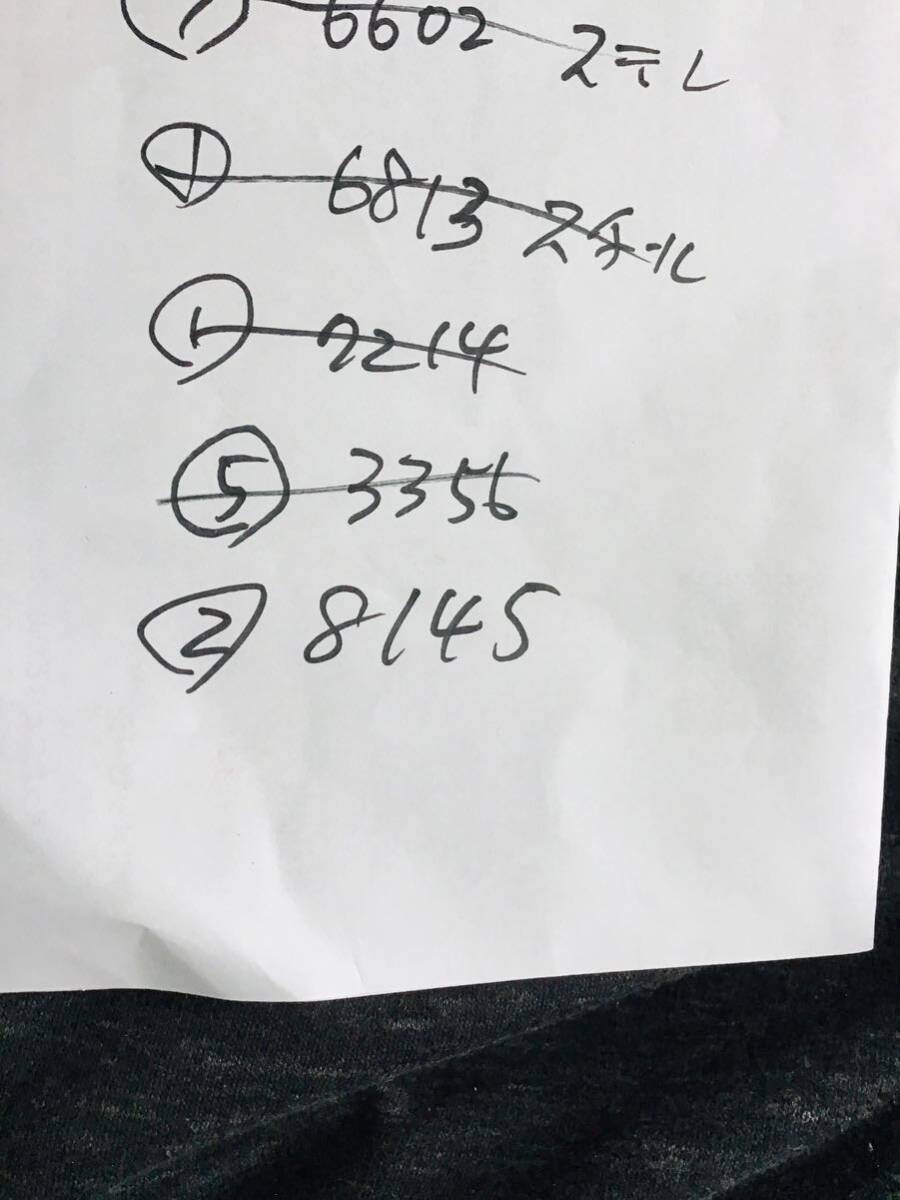 ⑦ 6602 ステレ
① 6813 スチール
① 7214
⑤ 3356
② 8145